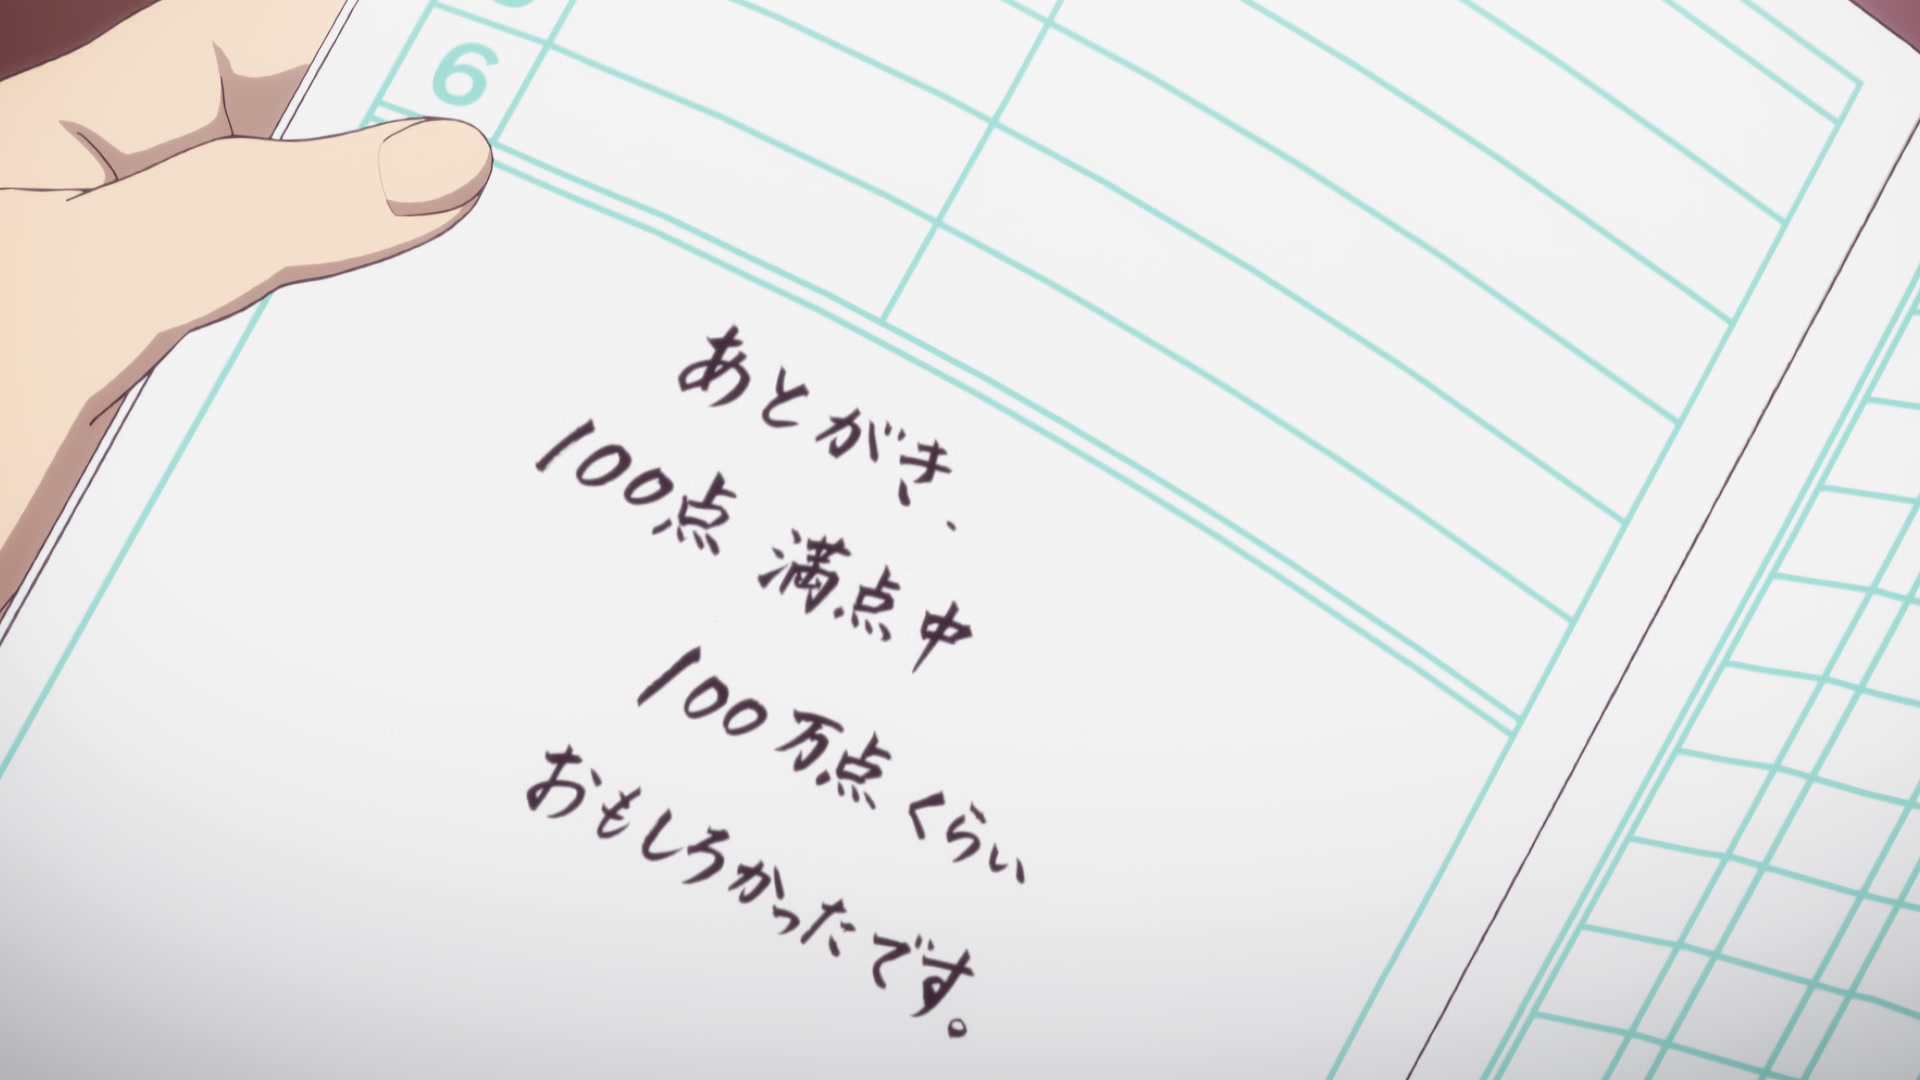 6
あとがき、
100点満点中
100万点くらい
おもしろかったです。